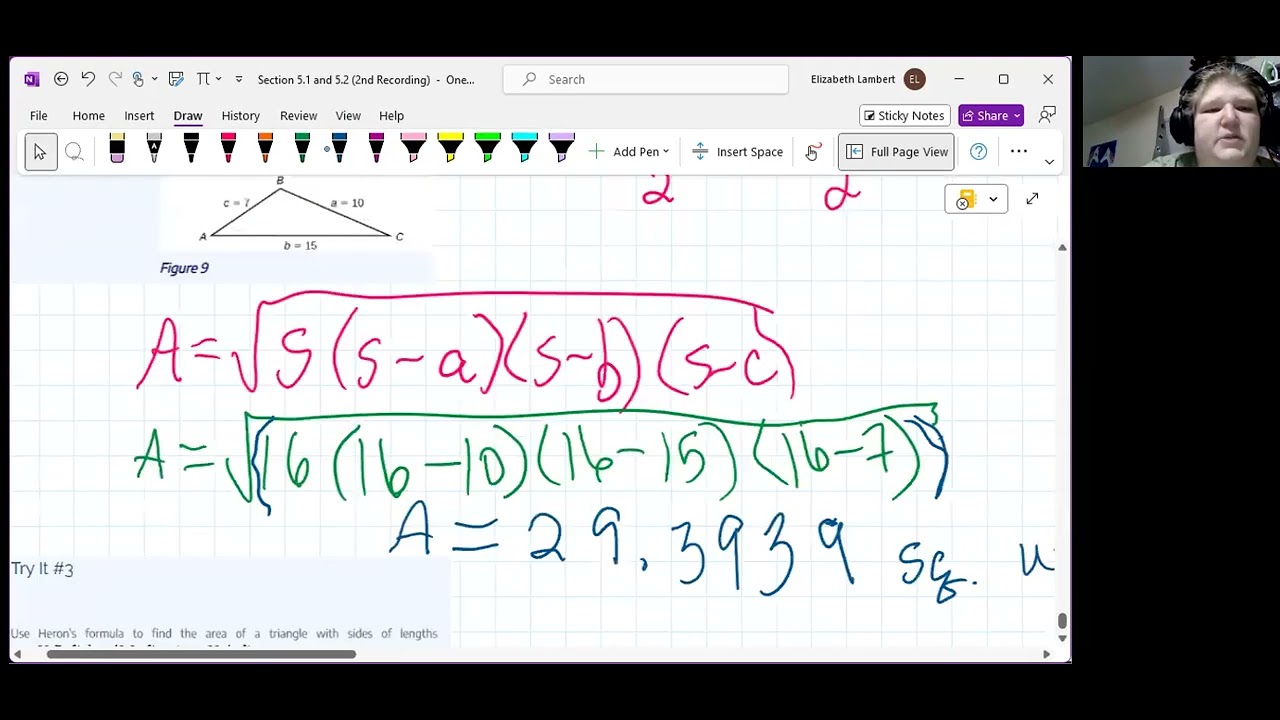 Section 5.1 and 5.2 (2nd Recording) - One...
Search
Elizabeth Lambert
EL
File Home Insert Draw History Review View Help
Sticky Notes
Share
Add Pen
Insert Space
Full Page View
2 2
B
c = 7 a = 10
A C
b = 15
Figure 9
A = √S(S-a)(S-b)(S-c)
A = √(16(16-10)(16-15)(16-7))
A = 29.3939 sq.
Try It #3
Use Heron's formula to find the area of a triangle with sides of lengths